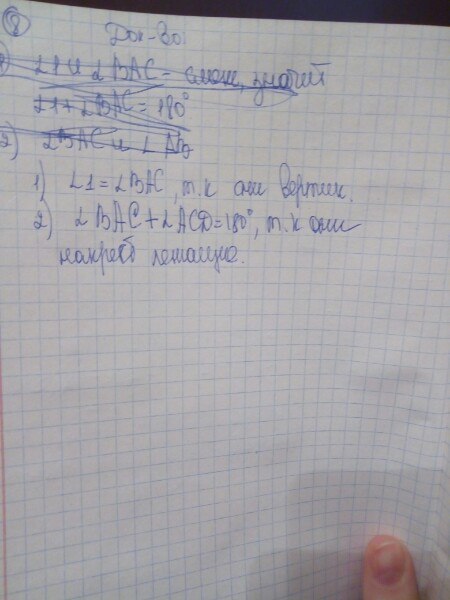 2
Док-во:
1) ∠1 и ∠BAC - смеж, значит
∠1+∠BAC=180°
2) ∠BAC и ∠
1) ∠1=∠BAC, т.к они вертик.
2) ∠BAC+∠ACD=180°, т.к они
накрест лежащие.